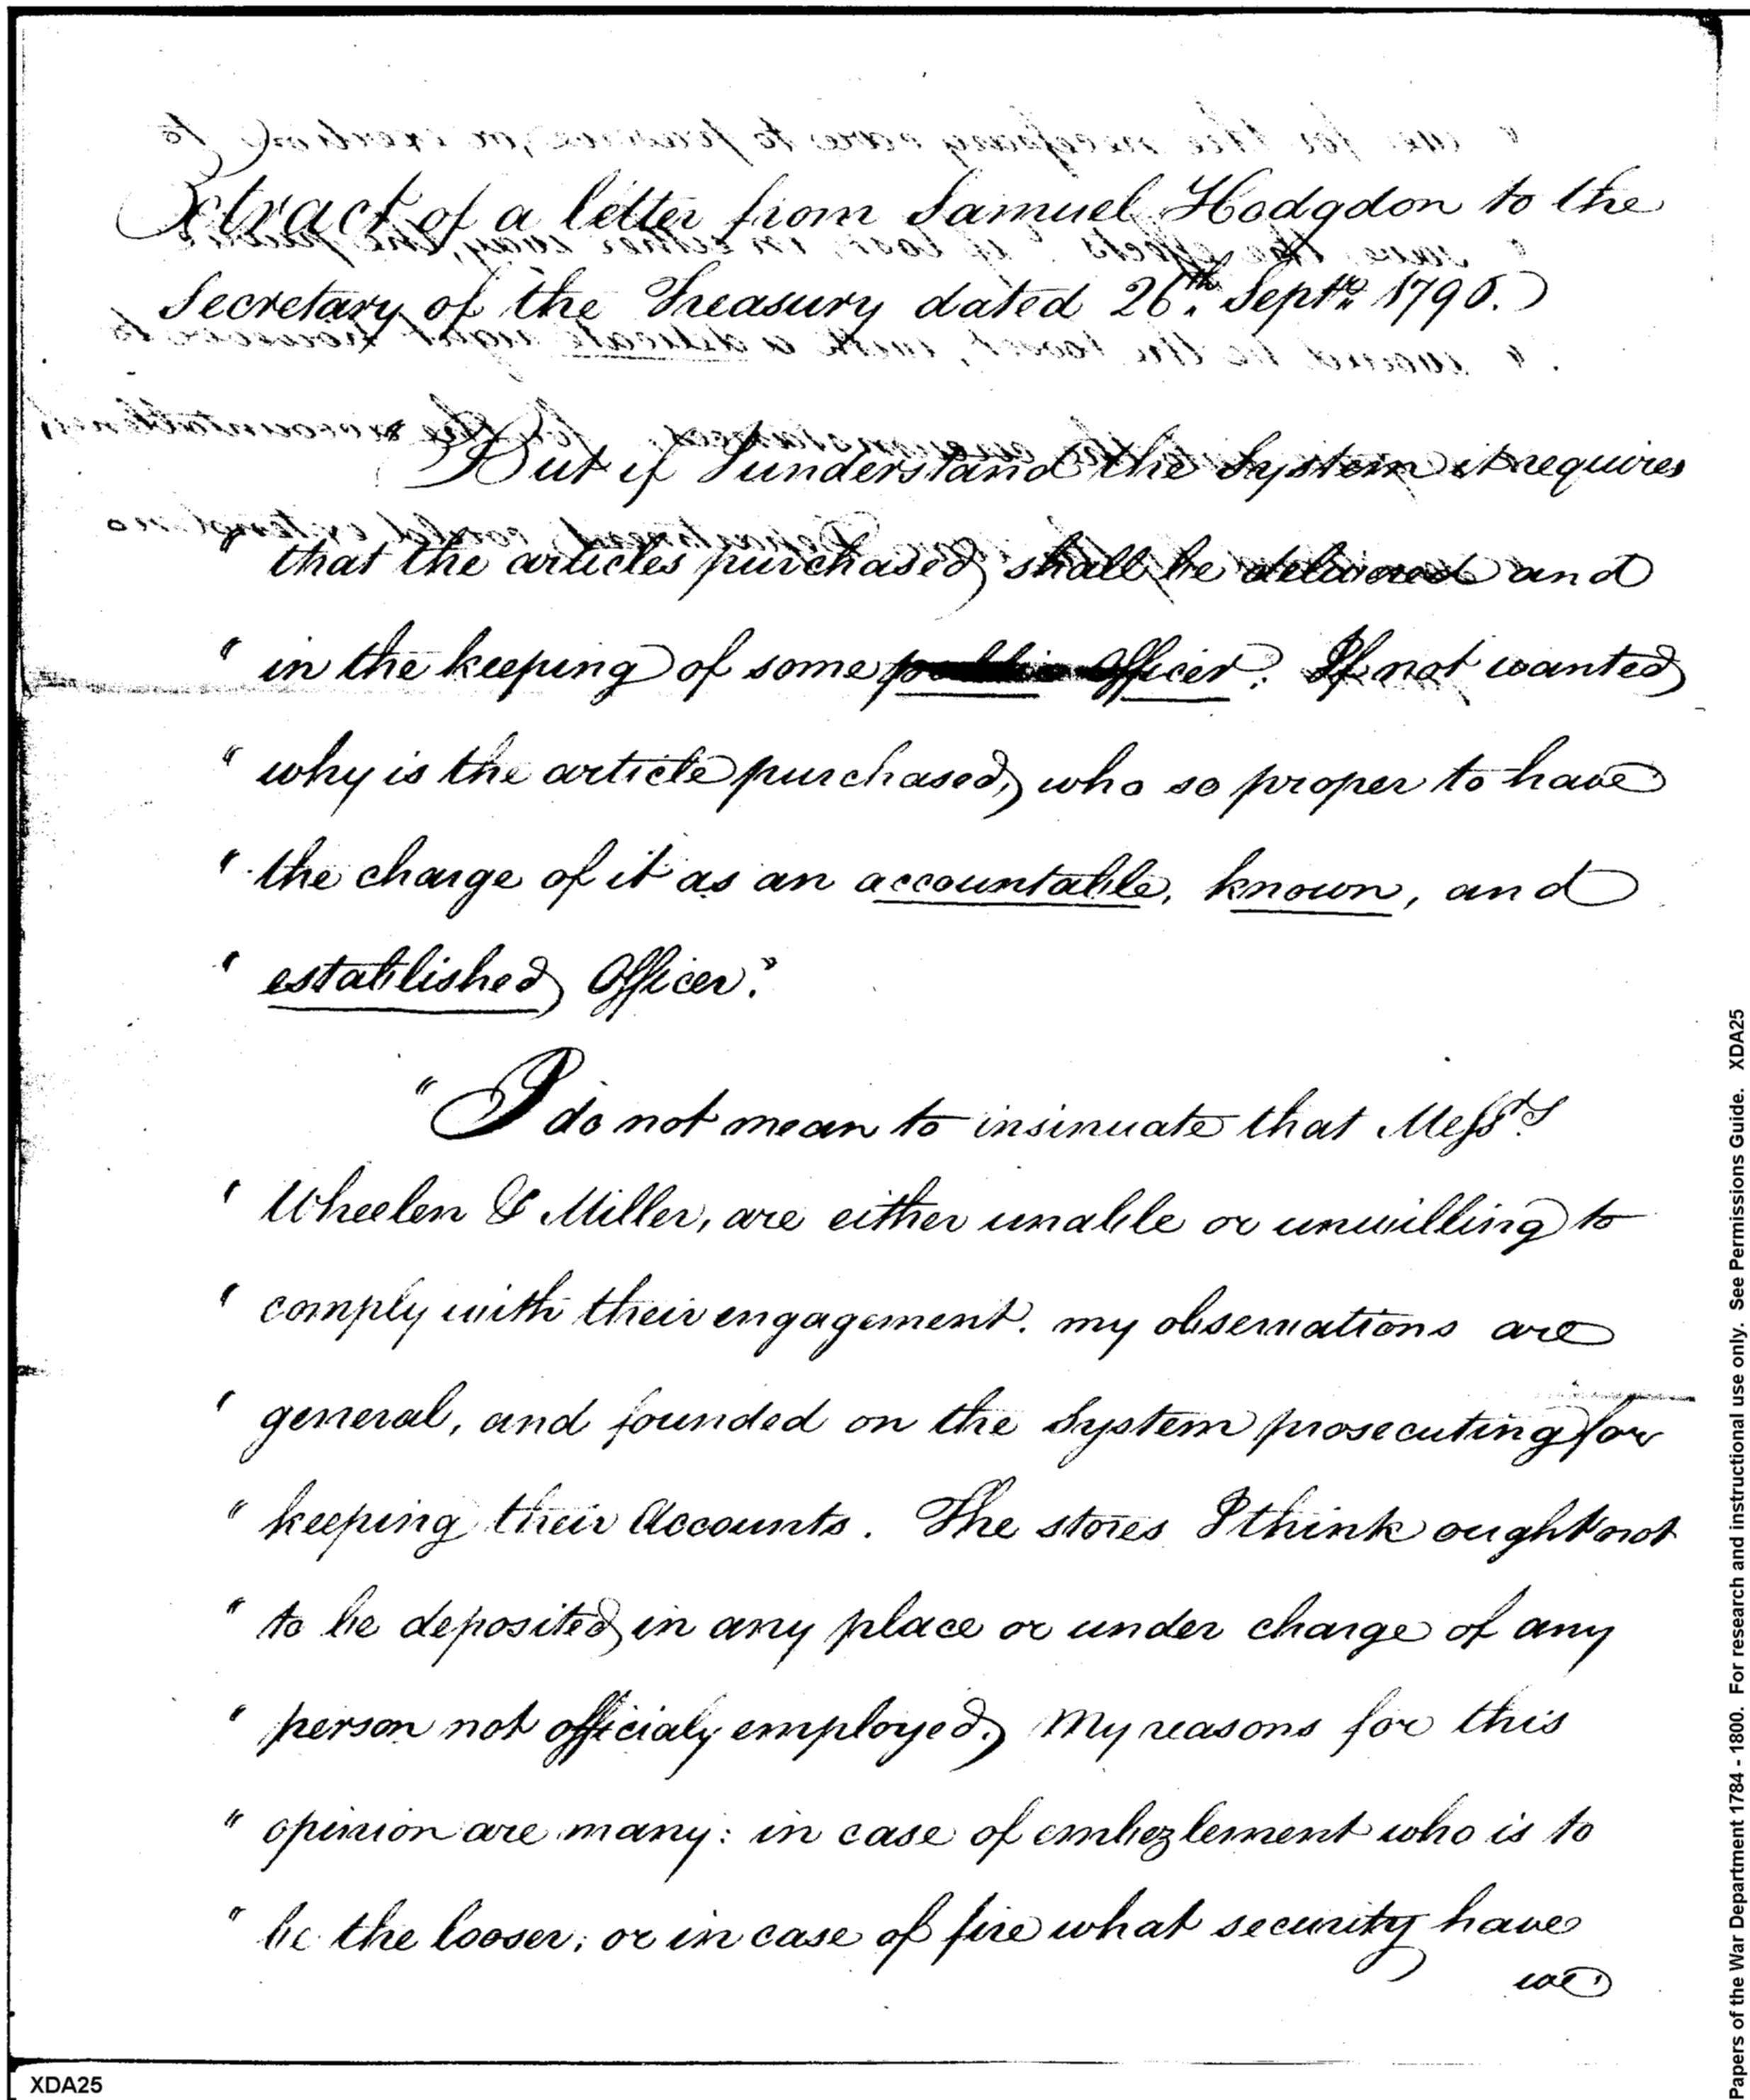 Extract of a letter from Samuel Hodgdon to the
Secretary of the Treasury dated 26th. Septr. 1790.
But if I understand the System it requires
" that the articles purchased shall be delivered and
" in the keeping of some public Officer. If not wanted
" why is the article purchased, who so proper to have
" the charge of it as an accountable, known, and
" established Officer."
"I do not mean to insinuate that Messrs.
" Wheelen & Miller, are either unable or unwilling to
" comply with their engagement. my observations are
" general, and founded on the System prosecuting for
" keeping their Accounts. The stores I think ought not
" to be deposited in any place or under charge of any
" person not officialy employed. My reasons for this
" opinion are many: in case of embezlement who is to
" be the looser; or in case of fire what security have
we
XDA25
Papers of the War Department 1784 - 1800. For research and instructional use only. See Permissions Guide. XDA25